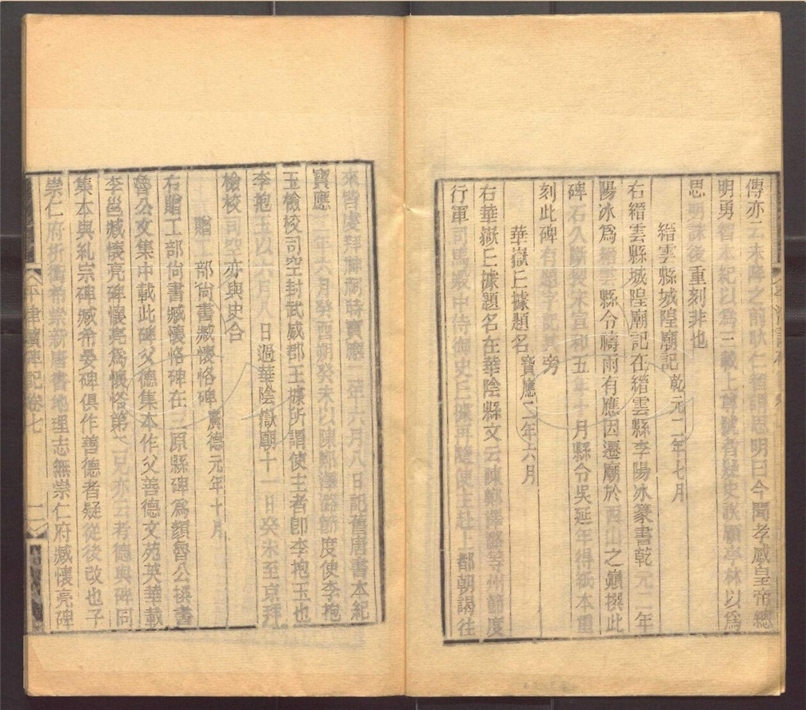 傳亦二未降之前耿仁智謂思明曰今聞孝感皇帝聰
明勇智
思明誅後重刻非也
縉雲縣城隍廟記乾元二年七月
右縉雲縣城隍廟記在縉雲縣李陽冰篆書乾元二年
陽冰爲縉雲縣令禱雨有應因遷廟於西山之巔撰此
碑石久斷裂宋宣和五年十月縣令吳延年得紙本重
刻此碑有題字記其旁
華嶽王據題名寶應二年六月
右華嶽王據題名在華陰縣文云陳鄭澤潞等州節度
行軍司馬殿中侍御史王據再陪使主赴上都朝謁往
來皆虔拜
寶應二年六月癸酉朔癸未以陳鄭澤潞節度使李抱
玉檢校司空封武威郡王據所謂使主者即李抱玉也
李抱玉以六月八日過華陰嶽廟十一日癸未至京拜
檢校司空亦與史合
贈工部尚書臧懷恪碑廣德元年十月
右贈工部尚書臧懷恪碑在三原縣碑爲顏魯公撰書
魯公文集中載此碑父德集本作父善德文苑英華載
李邕臧懷亮碑懷亮爲懷恪第之兄亦云考德與碑同
集本與糺宗碑臧希晏碑俱作善德者疑從後改也子
崇仁府折衝希崇新唐書地理志無崇仁府臧懷亮碑
平津讀碑記卷七